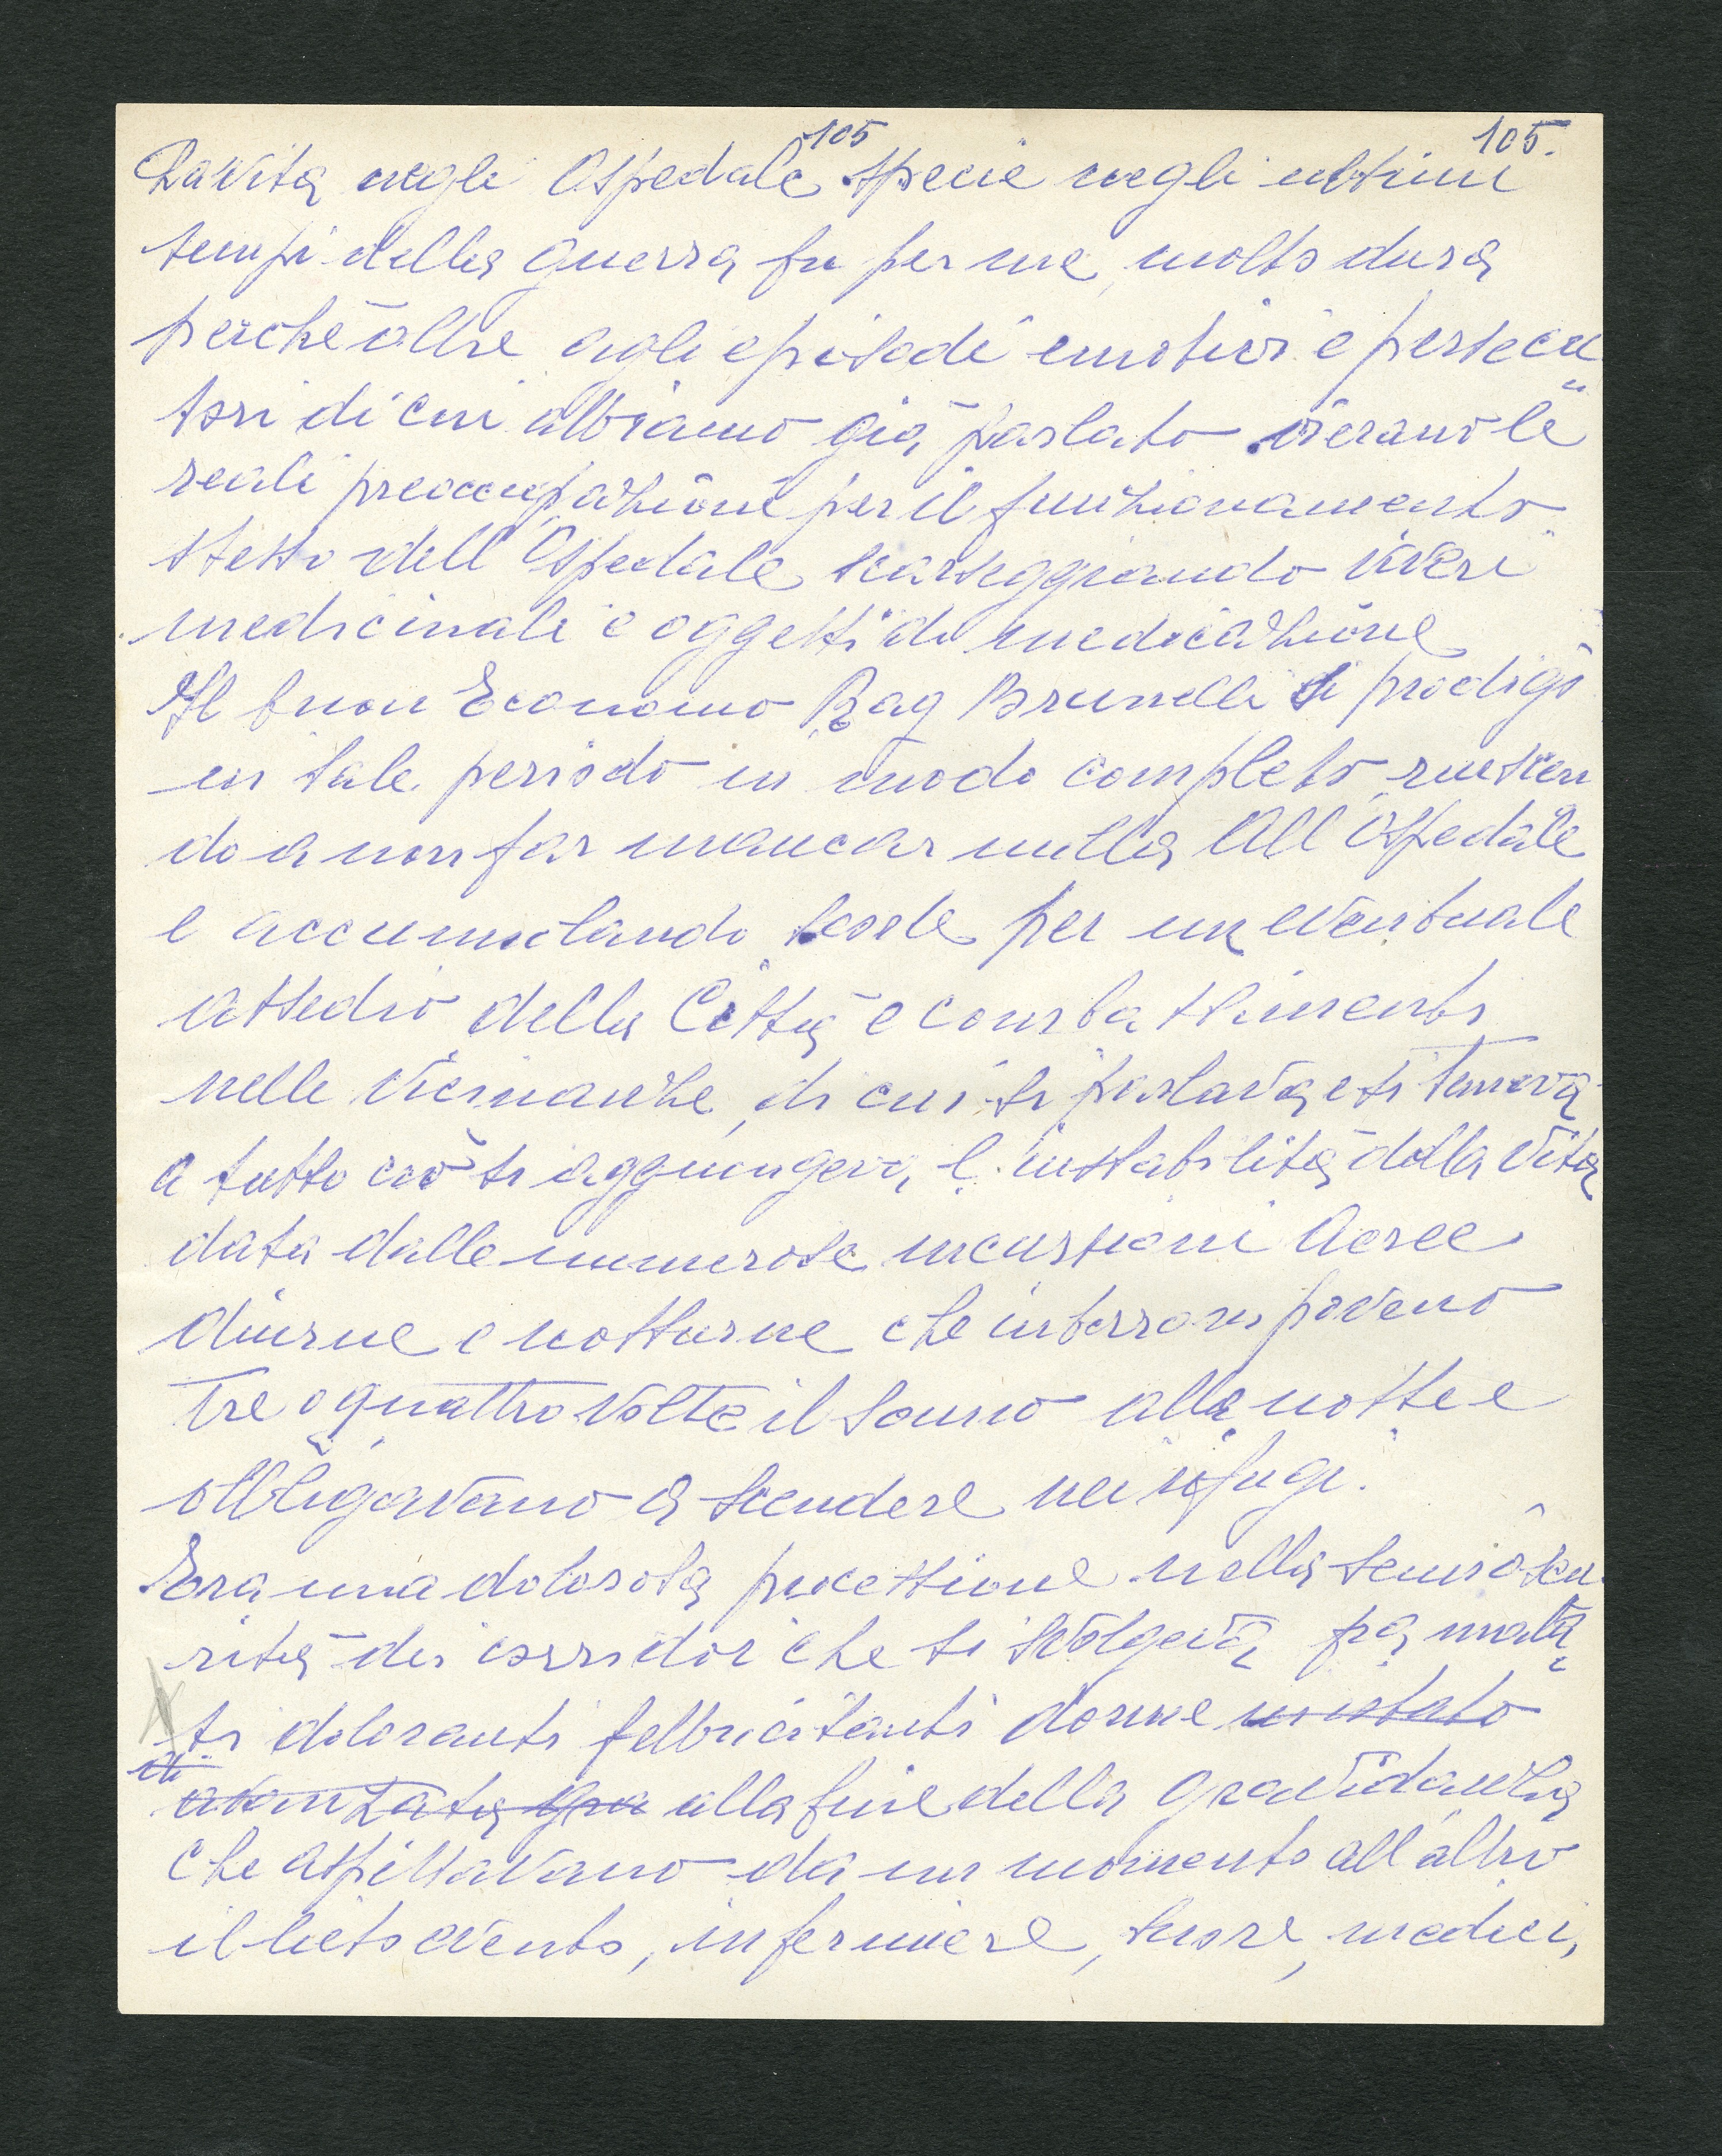 105 105.
La vita negli Ospedale specie negli ultimi
tempi della guerra fu per me, molto dura
perchè oltre agli episodi emotivi e persecu
tori di cui abbiamo già parlato v'erano le
reali preoccupazioni per il funzionamento
stesso dell'Ospedale scarseggiando viveri
medicinali e oggetti di medicazione
Il buon Economo Rag Brunelli si prodigò
in tale periodo in modo completo, riuscen
do a non far mancar nulla all'Ospedale
e accumulando per un eventuale
assedio della Città e combattimenti
nelle vicinanze, di cui si parlava e si temeva
a tutto ciò si aggiungeva l'instabilità della vita
data dalle numerose incursioni aeree
diurne e notturne che interrompevano
tre o quattro volte il sonno alla notte e
obbligavano a scendere nei rifugi.
Era una dolorosa processione nella semioscu
rità dei corridoi che si svolgeva fra mala
ti doloranti febbricitanti donne in istato
di avanzata gra alla fine della gravidanza
che aspettavano da un momento all'altro
il lieto evento, infermiere, suore, medici,